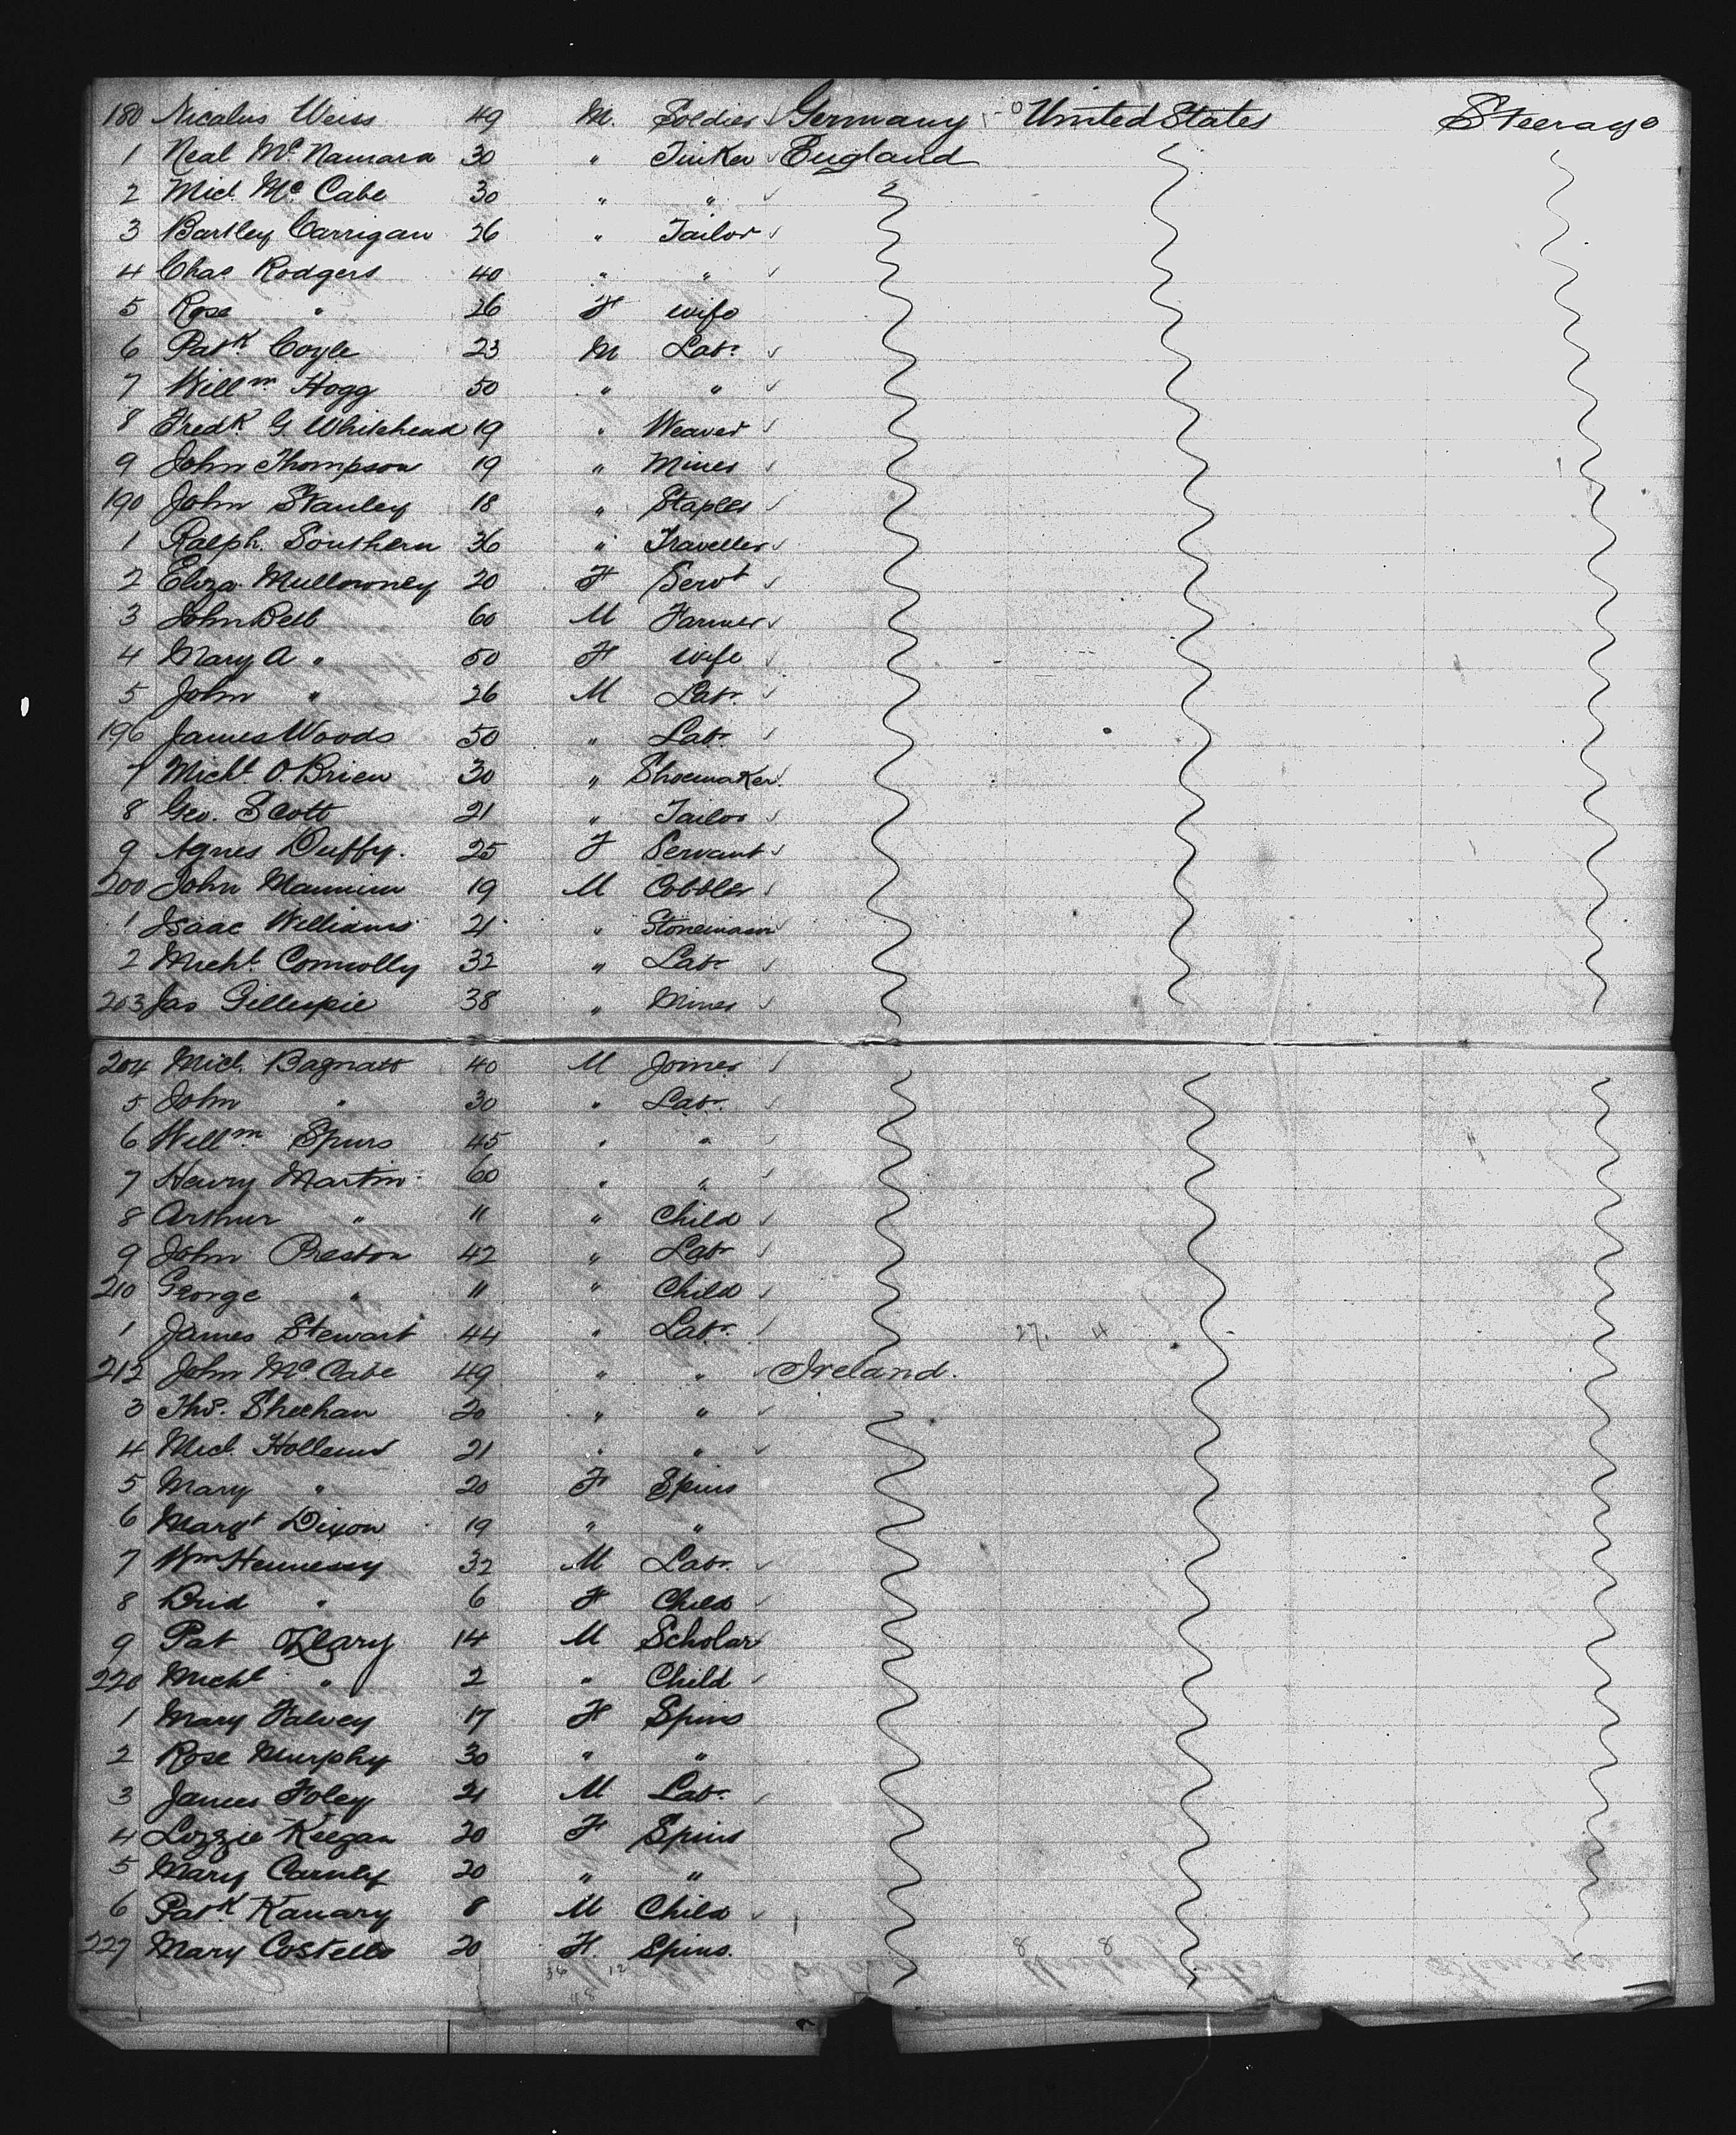 180 Nicalus Weiss 49 M. Soldier Germany United States Steerage
1 Neal Mc Namara 30 " Tinker England
2 Mich. Mc Cabe 30 " "
3 Bartley Carrigan 26 " Tailor
4 Chas Rodgers 40 " "
5 Rose " 26 F wife
6 Patk Coyle 23 M Labr
7 Willm Hogg 50 " "
8 Fredk G Whitehead 19 " Weaver
9 John Thompson 19 " Miner
190 John Stanley 18 " Stapler
1 Ralph Southern 36 " Traveller
2 Eliza Mullowney 20 F Servt
3 John Bell 60 M Farmer
4 Mary A " 50 F wife
5 John " 26 M Labr
196 James Woods 50 " Labr
7 Michl O'Brien 30 " Shoemaker
8 Geo. Scott 21 " Tailor
9 Agnes Duffy. 25 F Servant
200 John 19 M Cobbler
1 Isaac Williams 21 " Stonemason
2 Michl Connolly 32 " Labr
203 Jas Gillespie 38 " Miner
204 Mich. 40 M Joiner
5 John " 30 " Labr
6 Willm Spurs 45 " "
7 Henry Martin 60 " "
8 Arthur " 11 " Child
9 John Preston 42 " Labr
210 George " 11 " Child
1 James Stewart 44 " Labr 27. 4
212 John Mc Cabe 49 " " Ireland.
3 Thos. Sheehan 20 " "
4 Mich. 21 " "
5 Mary " 20 F Spins
6 Margt Dixon 19 " "
7 Wm Hennessy 32 M Labr
8 Brid " 6 F Child
9 Pat O'Leary 14 M Scholar
220 Michl " 2 " Child
1 Mary Falvey 17 F Spins
2 Rose Murphy 30 " "
3 James Foley 21 M Labr
4 Lizzie Keegan 20 F Spins
5 Mary Carney 20 " "
6 Patk Kanary 8 M Child
227 Mary Costello 20 F. Spins. 8 8
36 12